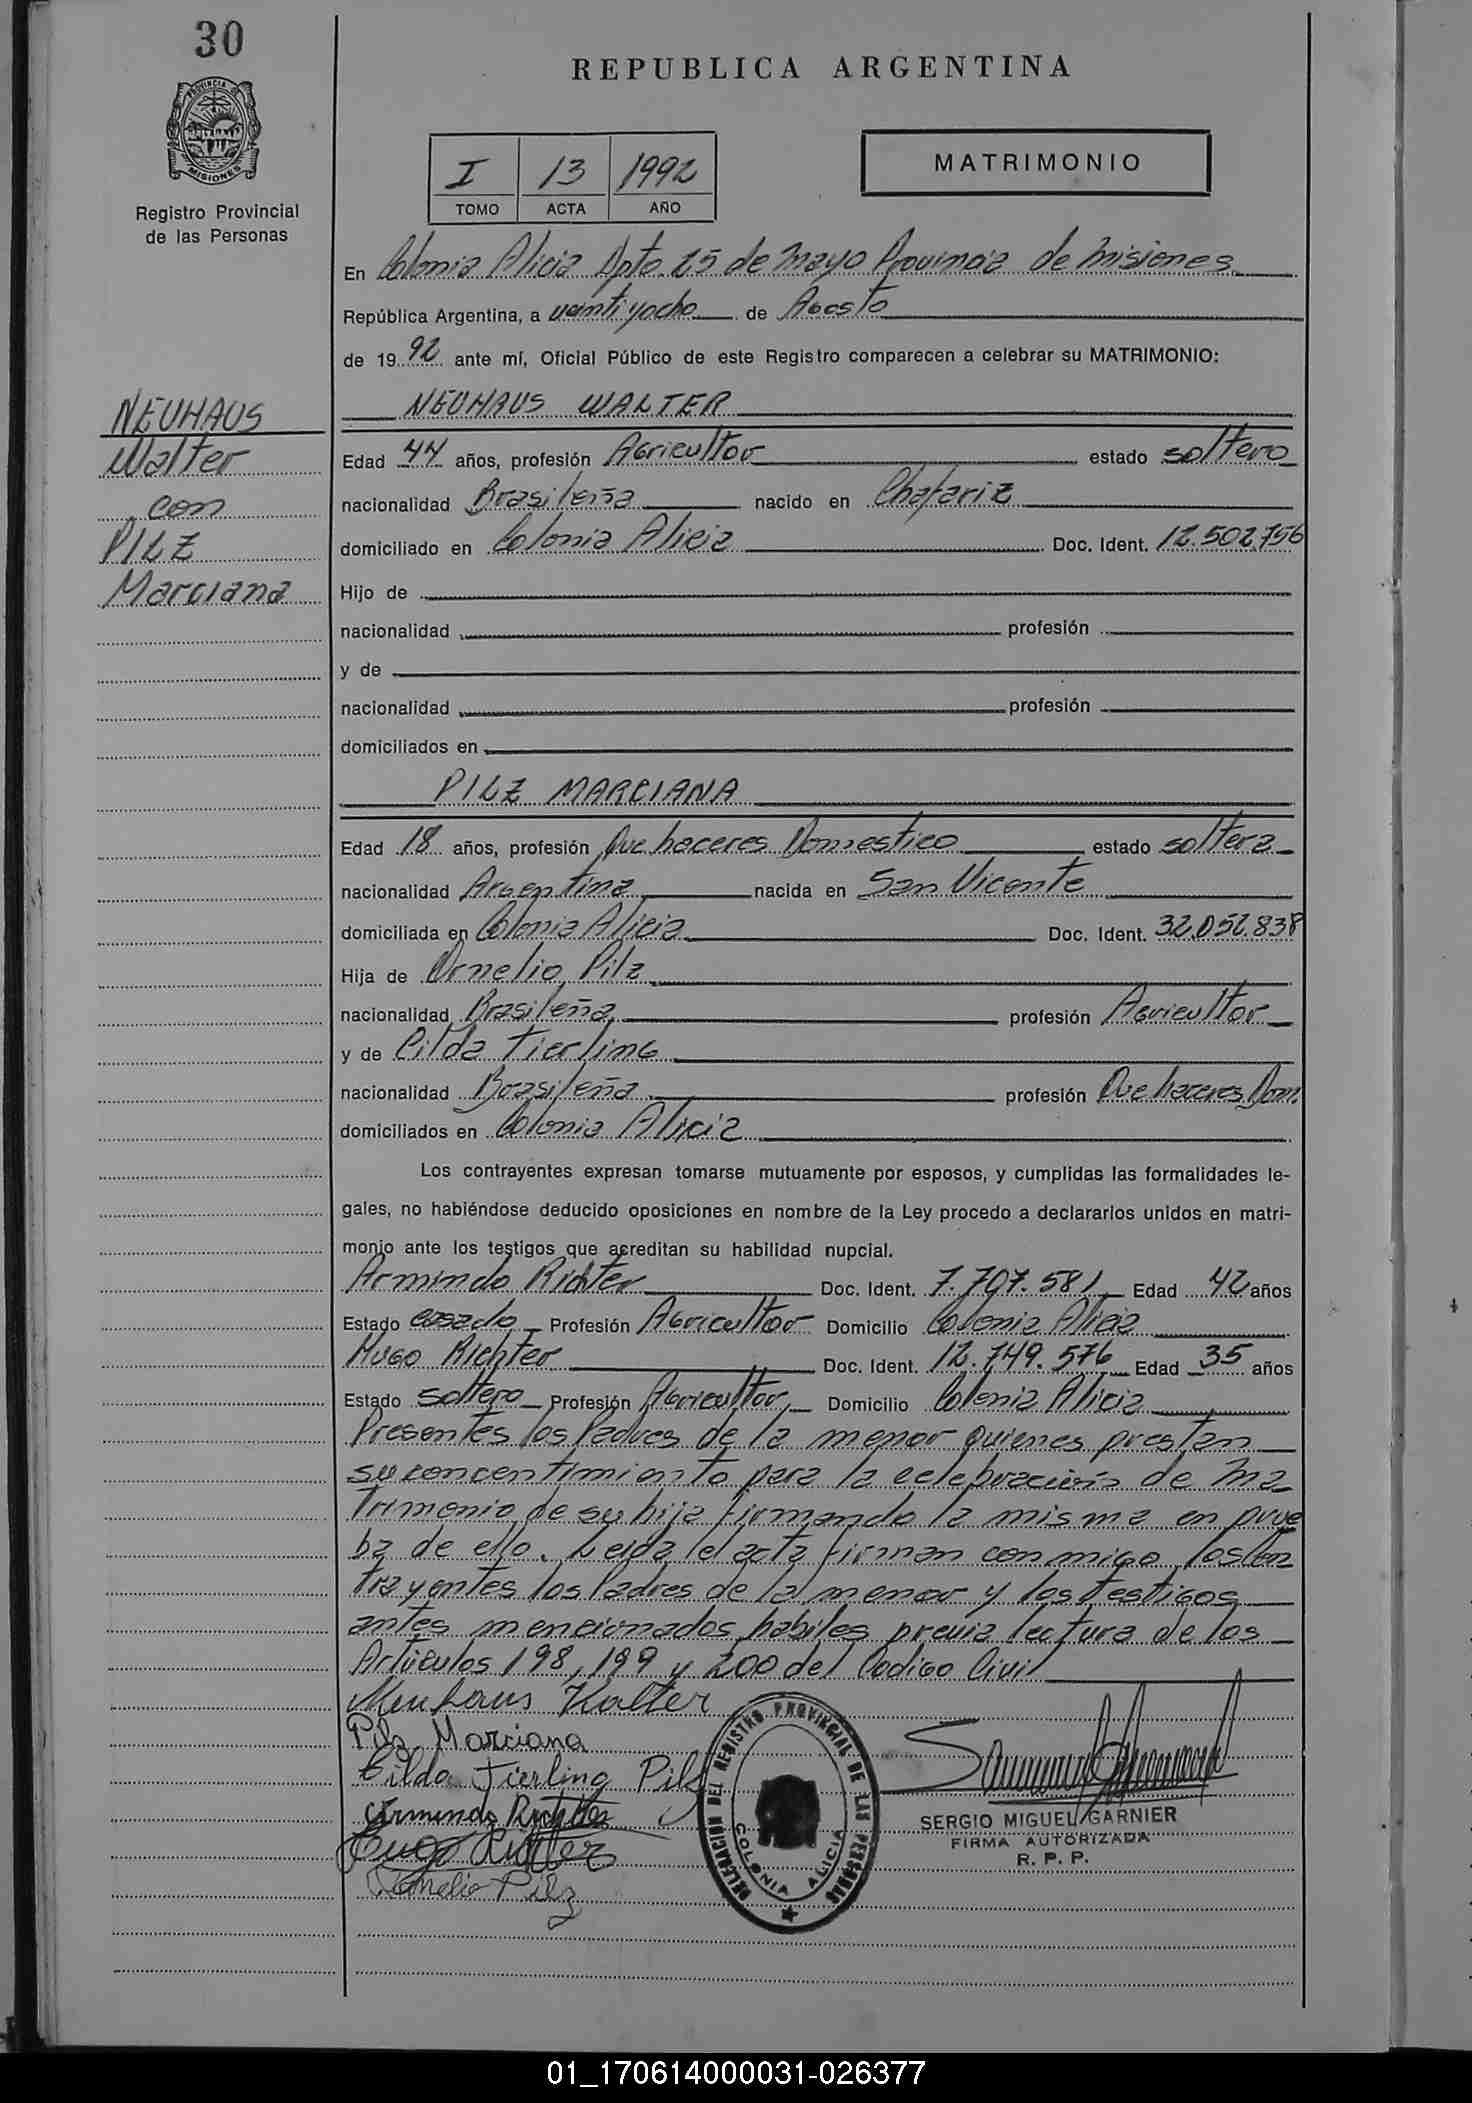 30
PROVINCIA DE
MISIONES
Registro Provincial
de las Personas
REPUBLICA ARGENTINA
I 13 1992
TOMO ACTA AÑO
MATRIMONIO
En Colonia Alicia Dpto. 25 de Mayo Provincia de Misiones
República Argentina, a veintiyocho de Agosto
de 1992 ante mí, Oficial Público de este Registro comparecen a celebrar su MATRIMONIO:
NEUHAUS WALTER
NEUHAUS
Walter
con
PILZ
Marciana
Edad 44 años, profesión Agricultor estado soltero
nacionalidad Brasileña nacido en Chafariz
domiciliado en Colonia Alicia Doc. Ident. 12.502.756
Hijo de
nacionalidad profesión
y de
nacionalidad profesión
domiciliados en
PILZ MARCIANA
Edad 18 años, profesión Que haceres Domestico estado soltera
nacionalidad Argentina nacida en San Vicente
domiciliada en Colonia Alicia Doc. Ident. 32.052.838
Hija de Ornelio Pilz
nacionalidad Brasileña profesión Agricultor
y de Cilda Tierling
nacionalidad Brasileña profesión Que haceres Dom.
domiciliados en Colonia Alicia
Los contrayentes expresan tomarse mutuamente por esposos, y cumplidas las formalidades le-
gales, no habiéndose deducido oposiciones en nombre de la Ley procedo a declararlos unidos en matri-
monio ante los testigos que acreditan su habilidad nupcial.
Armindo Richter Doc. Ident. 7.707.581 Edad 42 años
Estado casado Profesión Agricultor Domicilio Colonia Alicia
Hugo Richter Doc. Ident. 12.749.576 Edad 35 años
Estado soltero Profesión Agricultor Domicilio Colonia Alicia
Presentes los Padres de la menor quienes prestan
su concentimiento para la celebración de Ma
trimonio de su hija firmando la misma en prue
ba de ello. Leida el acta firman conmigo los Con
trayentes los Padres de la menor y los testigos
antes mencionados habiles previa lectura de los
Articulos 198, 199 y 200 del Codigo Civil
Neuhaus Walter
Pilz Marciana
Cilda Tierling Pilz
Armindo Richter
Hugo Richter
Ornelio Pilz
DELEGACION DEL REGISTRO PROVINCIAL DE LAS PERSONAS
COLONIA ALICIA
SERGIO MIGUEL GARNIER
FIRMA AUTORIZADA
R. P. P.
01_170614000031-026377